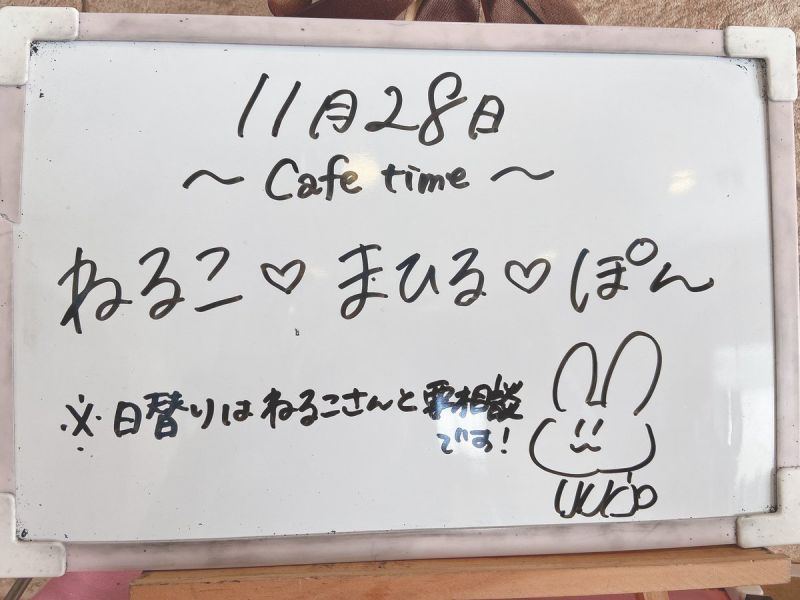 11月28日
～ Cafe time ～
ねるこ♡まひる♡ぽん
※日替りはねるこさんと要相談
です!